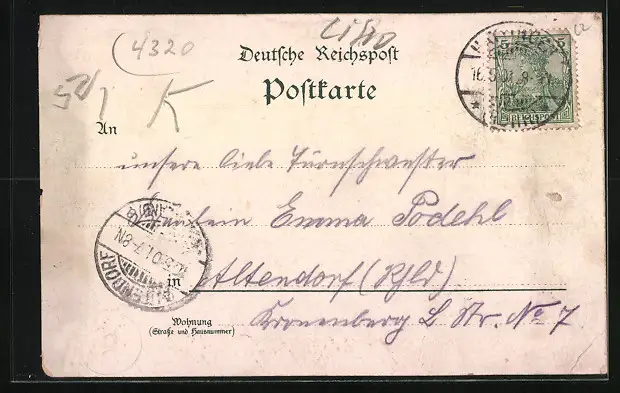 4320
Deutsche Reichspost
Postkarte
K
An
unsere liebe Turnschwester
Fräulein Emma Podehl
in Altendorf (Rhld)
Kronenberg Str. No 7
Wohnung
(Straße und Hausnummer)
5 5
REICHSPOST
ALTENDORF